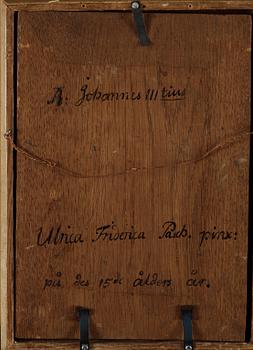 R: Johannes III tius
Ulrica Friderica Pasch. pinx:
på des 15de ålders år.